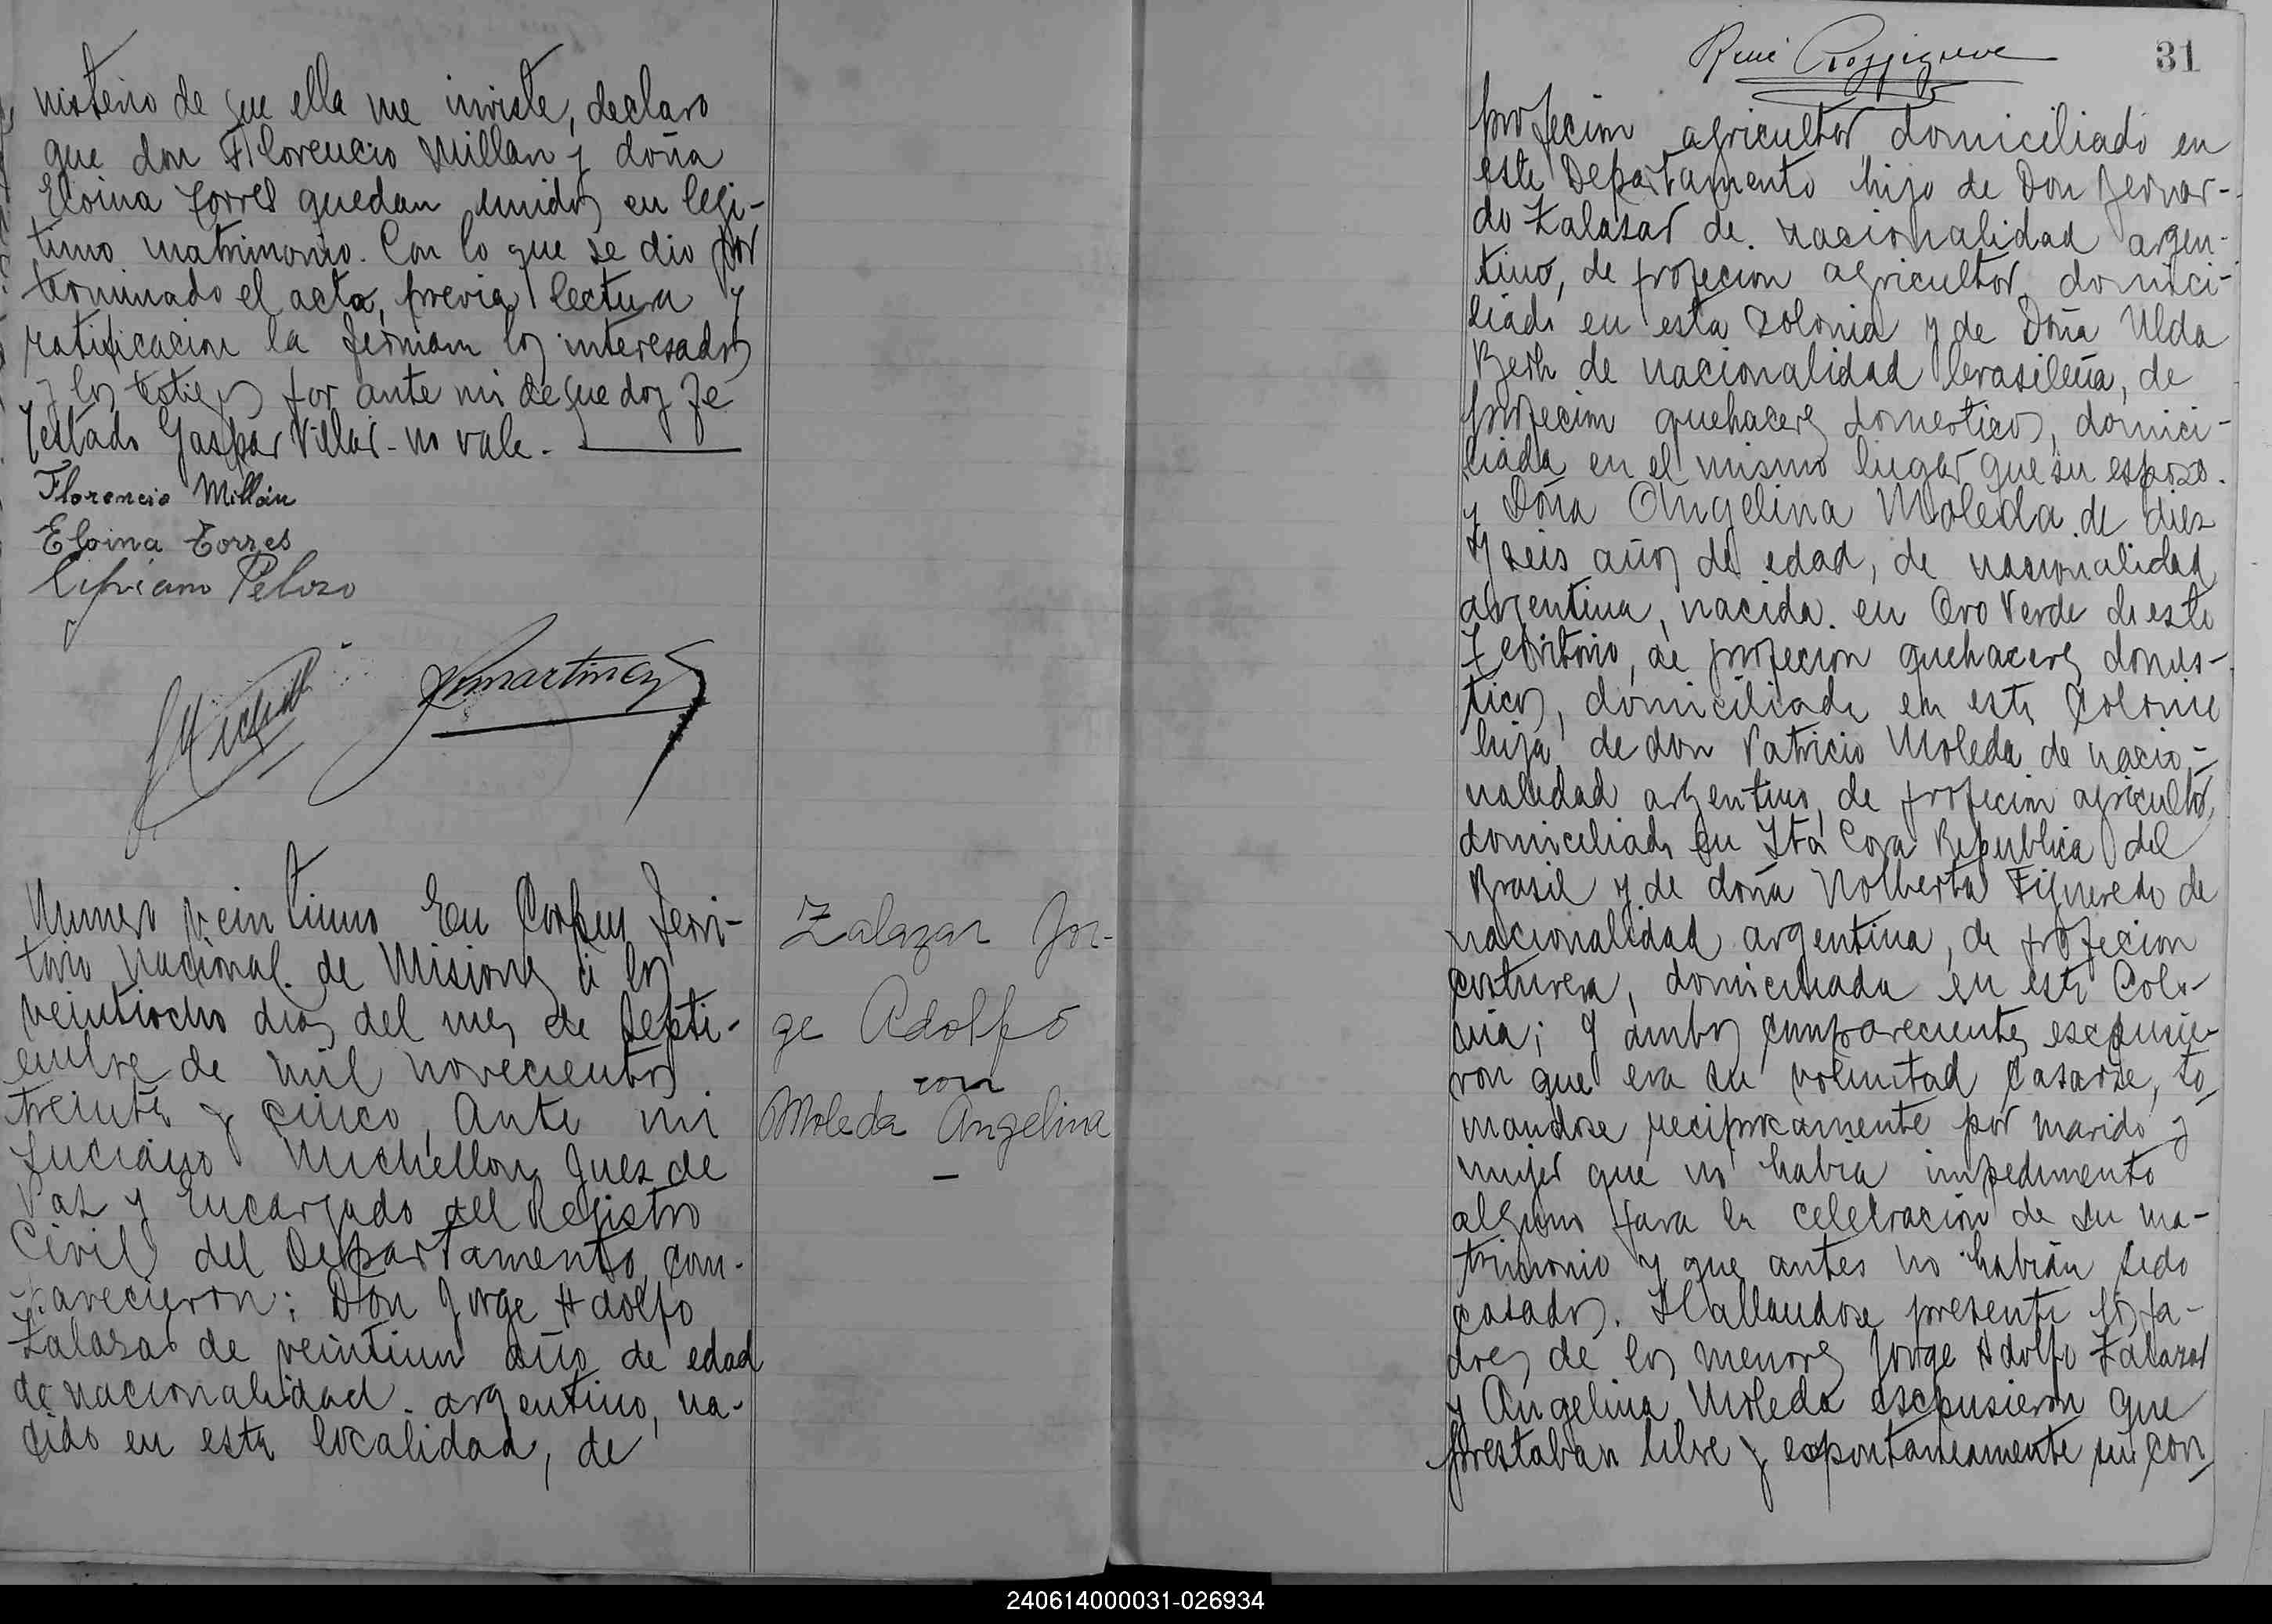 nisterio de que ella me inviste, declaro
que don Florencio Millan y doña
Eloina Torres quedan unidos en legi-
timo matrimonio. Con lo que se dio por
terminado el acta, previa lectura y
ratificacion la firmam los interesados
y los testigos por ante mi de que doy fe
Testado Gaspar Villar - no vale. -
Florencio Millán
Eloina Torres
Cipriano Pelozo
Numero veintiuno En Corpus Terri-
torio Nacional de Misiones a los
veintiocho dias del mes de Septi-
embre de mil novecientos
treinta y cinco, ante mi
Luciano Michellon Juez de
Paz y Encargado del Registro
Civil del Departamento, com-
parecieron: Don Jorge Adolfo
Zalazar de veintiun año de edad
de nacionalidad argentino, na-
cido en esta localidad, de
Zalazar Jor-
ge Adolfo
con
Moleda Angelina
René
31
profecion agricultor domiciliado en
este Departamento hijo de Don Fernar-
do Zalazar de nacionalidad argen-
tino, de profecion agricultor domici-
liado en esta Colonia y de Doña Ulda
de nacionalidad brasileña, de
profecion quehaceres domesticos, domici-
liada en el mismo lugar que su esposo.
y Doña Angelina Moleda de diez
y seis años de edad, de nacionalidad
argentina, nacida en Oro Verde de este
Territorio, de profecion quehaceres domes-
ticos, domiciliada en esta Colonia
hija de don Patricio Moleda de nacio-
nalidad argentino, de profecion agricultor,
domiciliado en Itá Cora Republica del
Brasil y de doña Nolberta Figueredo de
nacionalidad argentina, de profecion
costurera, domiciliada en esta Colo-
nia; y ambos comparecientes escpusie-
ron que era su voluntad casarse, to-
mandose reciprocamente por marido y
mujer que no habia impedimento
alguno para la celebracion de su ma-
trimonio y que antes no habian sido
casados. Hallandose presente los pa-
dres de los menores Jorge Adolfo Zalazar
y Angelina Moleda escpusieron que
prestaban libre y espontaneamente su con-
240614000031-026934